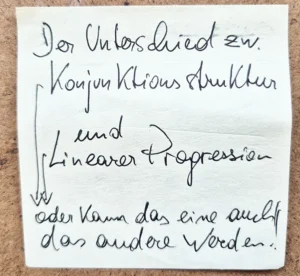 Der Unterschied zw.
Konjunktionsstruktur
und
Linearer Progression
oder kann das eine auch
das andere werden.